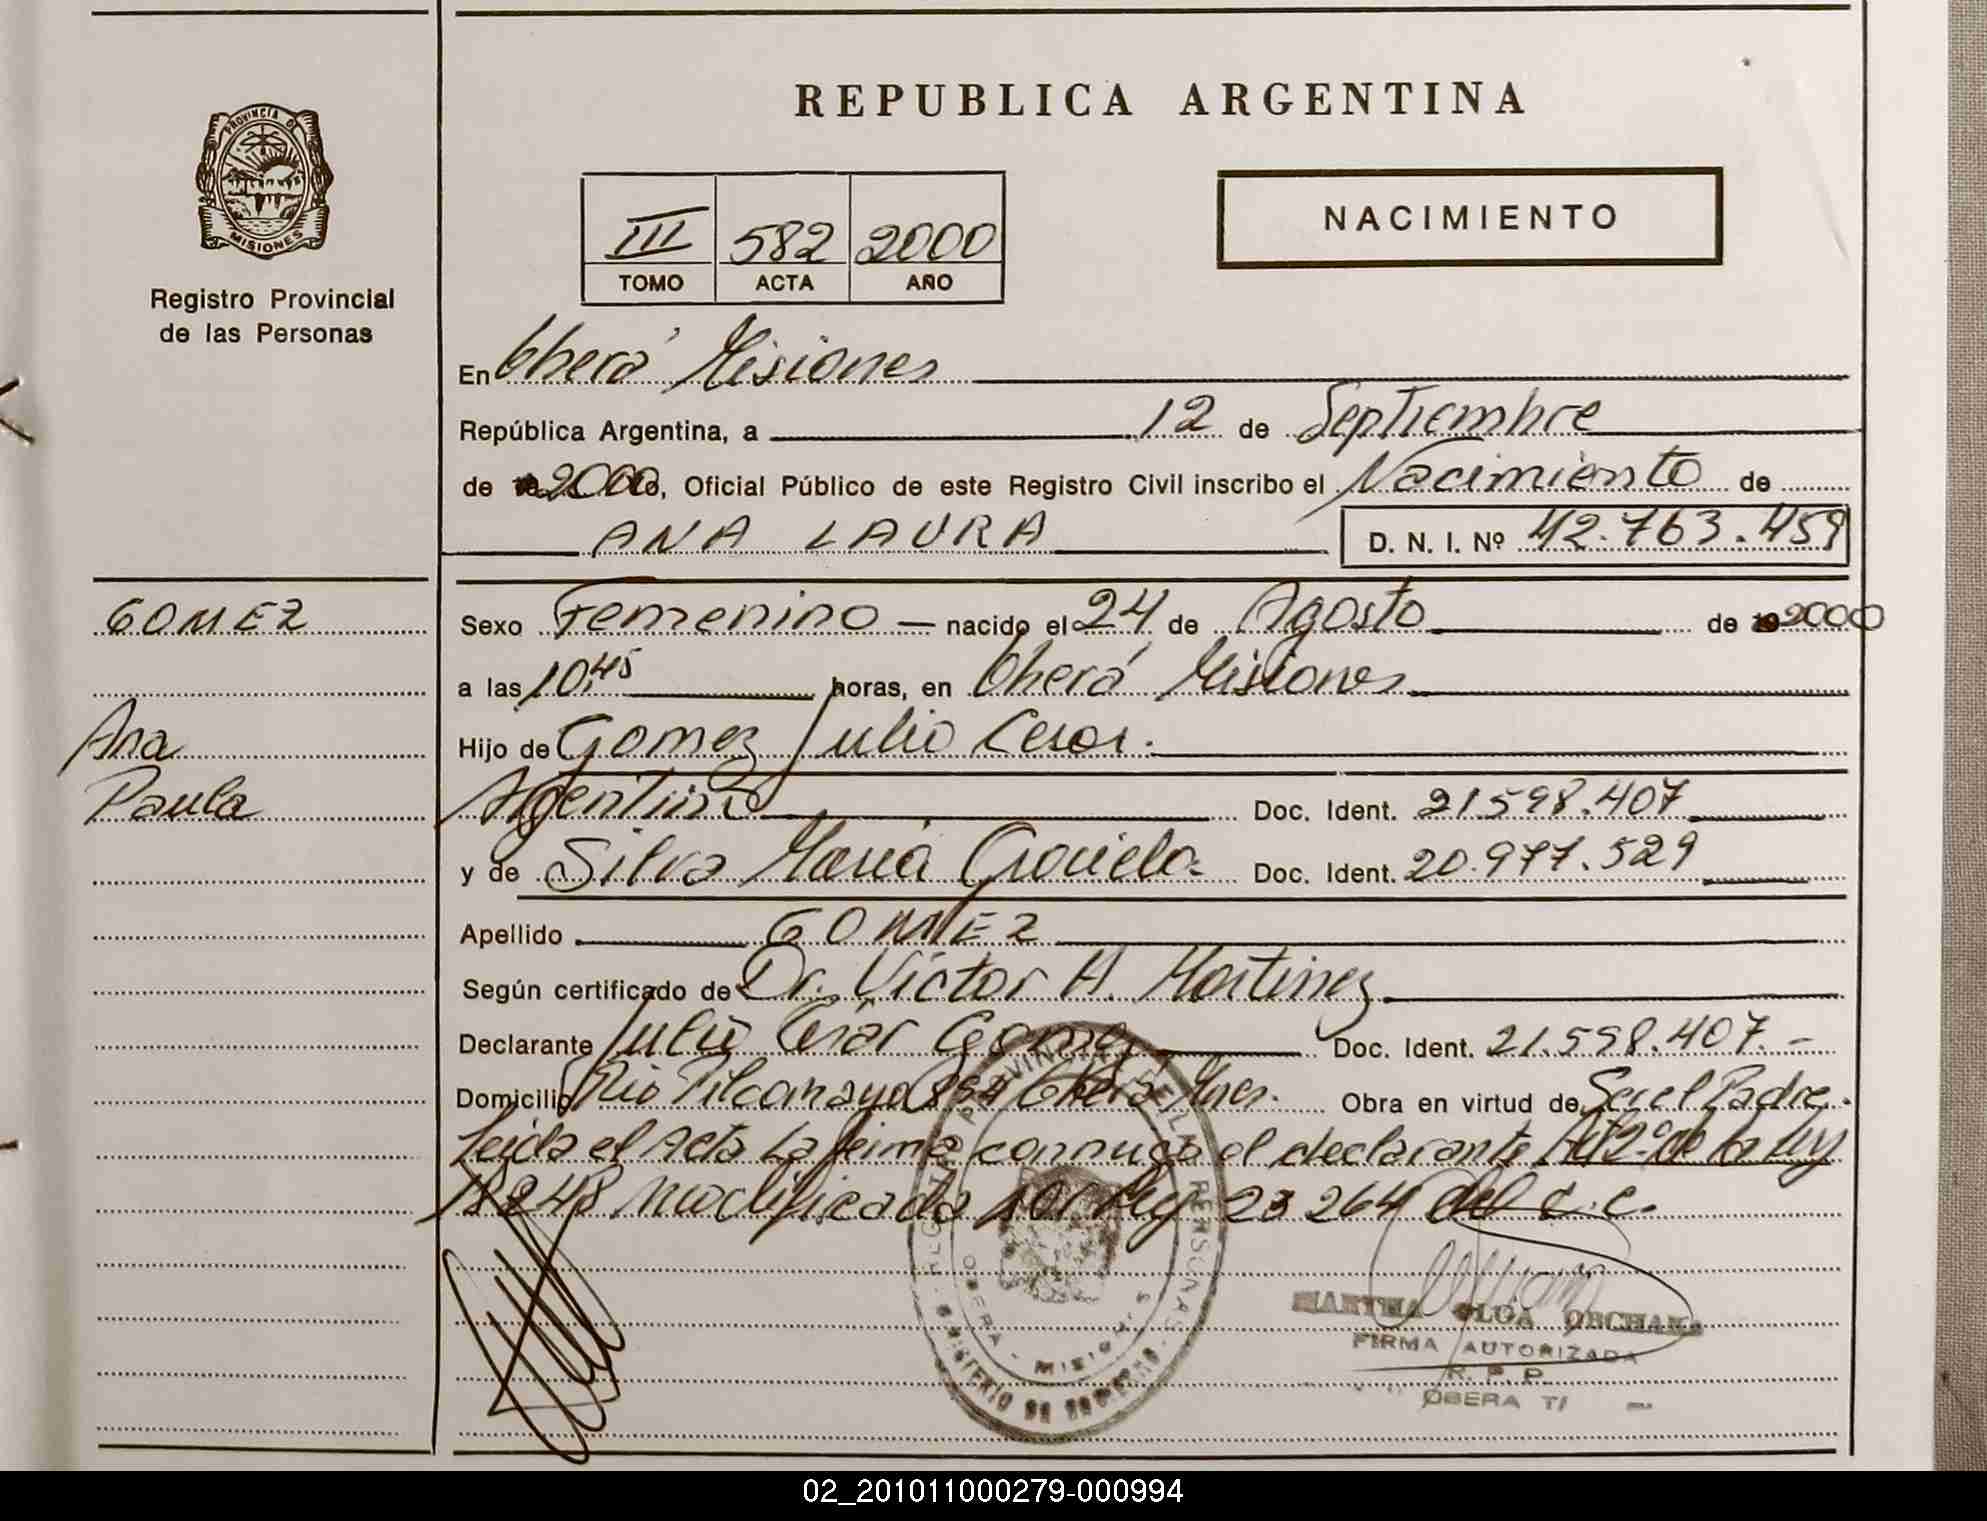 REPUBLICA ARGENTINA
PROVINCIA DE
MISIONES
Registro Provincial
de las Personas
III 582 2000
TOMO ACTA AÑO
NACIMIENTO
En Oberá Misiones
República Argentina, a 12 de Septiembre
de 2000, Oficial Público de este Registro Civil inscribo el Nacimiento de
ANA LAURA D. N. I. Nº 42.763.459
GOMEZ
Ana
Paula
Sexo Femenino nacido el 24 de Agosto de 2000
a las 10,45 horas, en Oberá Misiones
Hijo de Gomez Julio Cesar.
Argentina Doc. Ident. 21.598.407
y de Silva María Graciela Doc. Ident. 20.977.529
Apellido GOMEZ
Según certificado de Dr. Victor H. Martinez
Declarante Julio César Gomez Doc. Ident. 21.598.407.-
Domicilio Rio Pilcomayo 854 Oberá Mnes. Obra en virtud de Ser el Padre.
Leida el Acta La firma conmigo el declarante Art 2º de la ley
18248 modificada por ley 23264 del C.C.
OBERA - MISIONES
MINISTERIO DE GOBIERNO
MARTHA OLGA
FIRMA AUTORIZADA
R. P. P.
OBERA
02_201011000279-000994